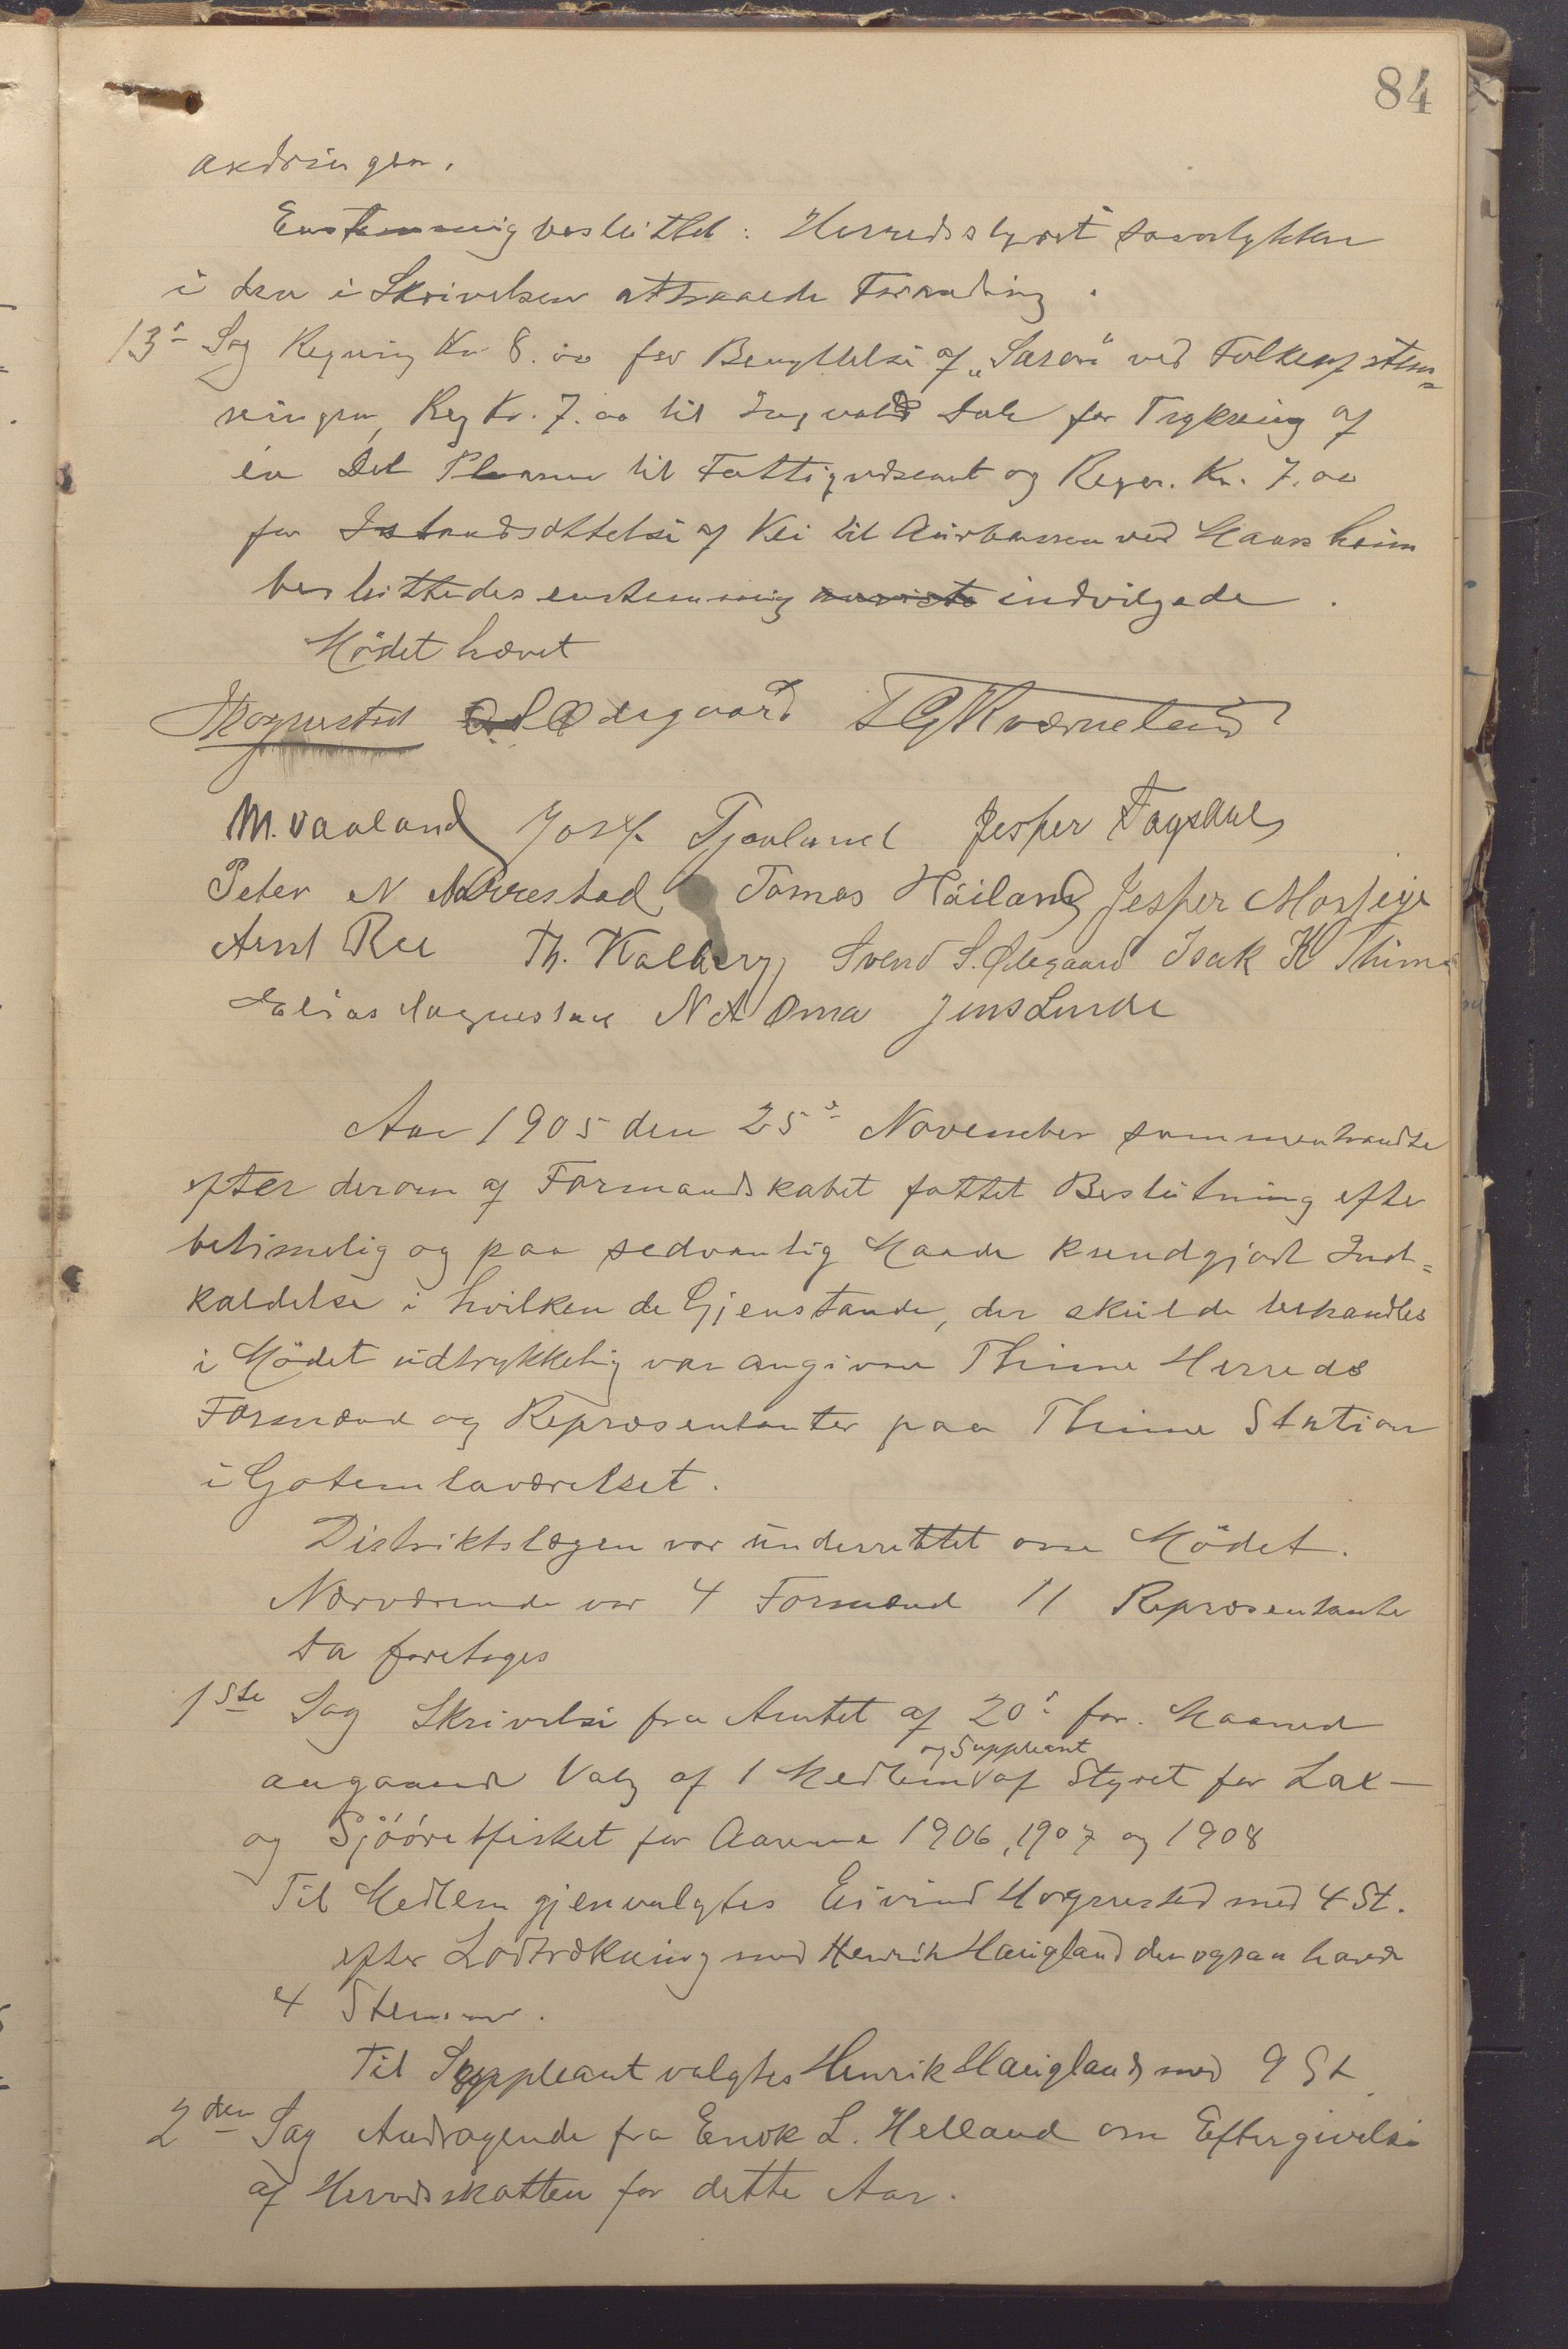 84
andringen.
Enstemmig besluttet: Herredsstyret samtykker
i den i Skrivelsen attraaede Forandring.
13de Sag Regning Kr 8.00 for Benyttelse af "Saron" ved Folkeafstem=
ningen, Reg Kr. 7.00 til Ingvald Dale for Trykning af
en Del Planer til Fattigvæsenet og Regn. Kr. 7.00
for Istandsættelse af Vei til ved Haarheim
besluttedes enstemmig indvilgede.
Mödet hævet
Mognestad O S Ødegaard T G Kværneland
M. Vaaland Josef Tjaaland Jesper Fagsdal
Peter N Norrestad Tomas Håiland Jesper
Arnt Ree Th. Kalberg Svend S. Ødegaard Isak K Thime
Elias Mognestad N A Oma Jens Lunde
Aar 1905 den 25de November sammentraadte
efter derom af Formandskabet fattet Beslutning efter
betimelig og paa sedvanlig Maade kundgjort Ind=
kaldelse i hvilken de Gjenstande, der skulde behandles
i Mödet udtrykkelig var angivne Thime Herreds
Formænd og Repræsentanter paa Thime Station
i Gotemplaværelset.
Distriktslægen var underrettet om Mödet.
Nærværende var 4 Formænd 11 Repræsentanter
Da foretoges
1ste Sag Skrivelse fra Amtet af 20de for. Maaned
og Suppleant
angaaende Valg af 1 Medlem af Styret for Lax-
og Sjööretfisket for Aarene 1906, 1907 og 1908
Til Medlem gjenvalgtes Eivind Mognestad med 4 St.
efter Lodtrækning med Henrik Haugland der ogsaa havde
4 Stemmer.
Til Suppleant valgtes Henrik Haugland med 9 St
2den Sag Andragende fra Enok L. Helland om Eftergivelse
af Herredsskatten for dette Aar.